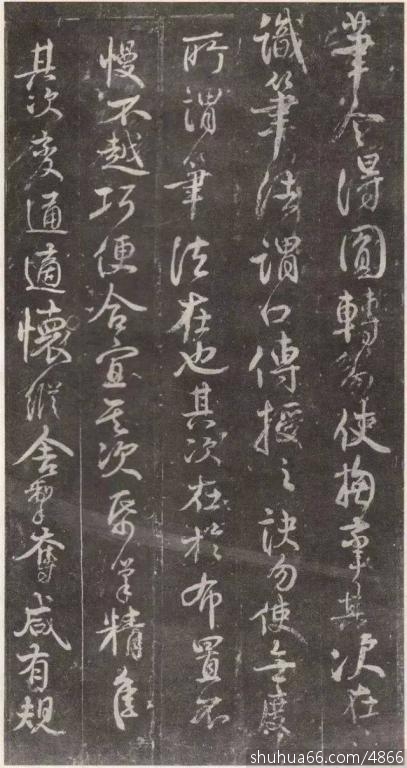 筆令得圓轉勿使拘攣其次在
識筆法謂口傳授之訣勿使無度
所謂筆法在也其次在於布置不
慢不越巧便合宜其次帋筆精佳
其次變通適懷縱舍掣奪咸有規
shuhua66.com/4866